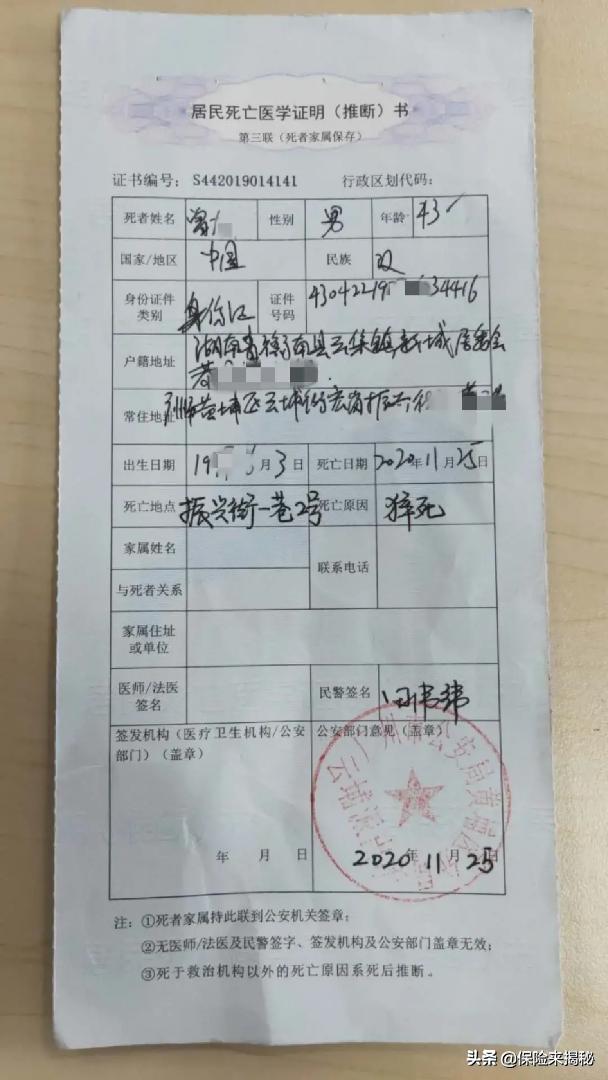 居民死亡医学证明（推断）书
第三联（死者家属保存）
证书编号： S442019014141 行政区划代码：
死者姓名 曾 性别 男 年龄 43
国家/地区 中国 民族 汉
身份证件类别 身份证 证件号码 430422197 34416
户籍地址 湖南省衡南县云集镇新城居委会
常住地址 广州市黄埔区云埔街宏岗振兴街
出生日期 19 月3日 死亡日期 2020年11月25日
死亡地点 振兴街一巷2号 死亡原因 猝死
家属姓名 联系电话
与死者关系
家属住址或单位
医师/法医签名 民警签名
签发机构（医疗卫生机构/公安部门）（盖章） 公安部门意见（盖章）
广州市公安局黄埔区分局
云埔派出所
年 月 日 2020年11月25日
注：①死者家属持此联到公安机关签章；
②无医师/法医及民警签字、签发机构及公安部门盖章无效；
③死于救治机构以外的死亡原因系死后推断。
头条 @保险来揭秘